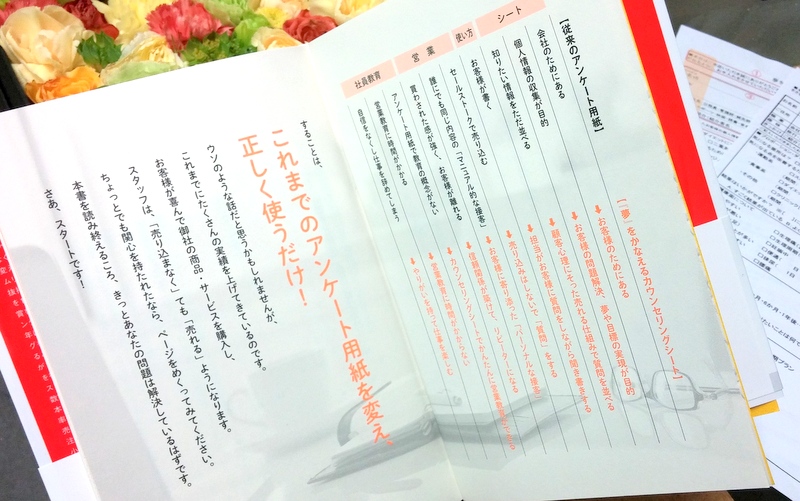 【従来のアンケート用紙】
【「夢」をかなえるカウンセリングシート】
シート
会社のためにある
↓お客様のためにある
個人情報の収集が目的
↓お客様の問題解決、夢や目標の実現が目的
知りたい情報をただ並べる
↓顧客心理にそった売れる仕組みで質問を並べる
使い方
お客様が書く
↓担当がお客様に質問をしながら聞き書きする
セールストークで売り込む
↓売り込みはしないで「質問」をする
営業
誰にでも同じ内容の「マニュアル的な接客」
↓お客様に寄り添った「パーソナルな接客」
買わされた感が強く、お客様が離れる
↓信頼関係が築けて、リピーターになる
社員教育
アンケート用紙で教育の概念がない
↓カウンセリングシートでかんたんに営業教育ができる
営業教育に時間がかかる
↓営業教育に時間がかからない
自信をなくし仕事を辞めてしまう
↓やりがいを持って仕事を楽しむ
することは、
これまでのアンケート用紙を変え、
正しく使うだけ！
ウソのような話だと思うかもしれませんが、
これまでにたくさんの実績を上げてきているのです。
お客様が喜んで御社の商品・サービスを購入し、
スタッフは、「売り込まなく」ても「売れる」ようになります。
ちょっとでも関心を持たれたなら、ページをめくってみてください。
本書を読み終えるころ、きっとあなたの問題は解決しているはずです。
さあ、スタートです！